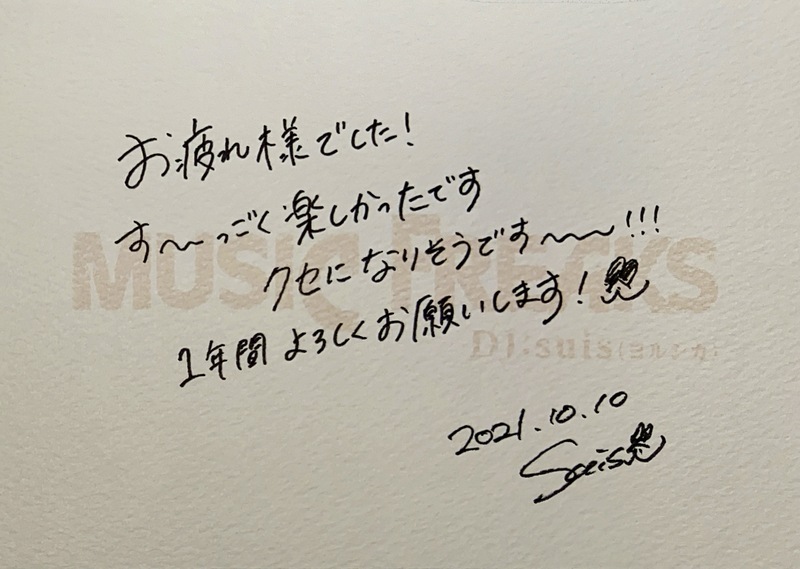 お疲れ様でした!
す〜〜っごく楽しかったです
クセになりそうです〜〜〜!!!
1年間よろしくお願いします!
MUSIC FREAKS
DJ:suis(ヨルシカ)
2021.10.10
suis